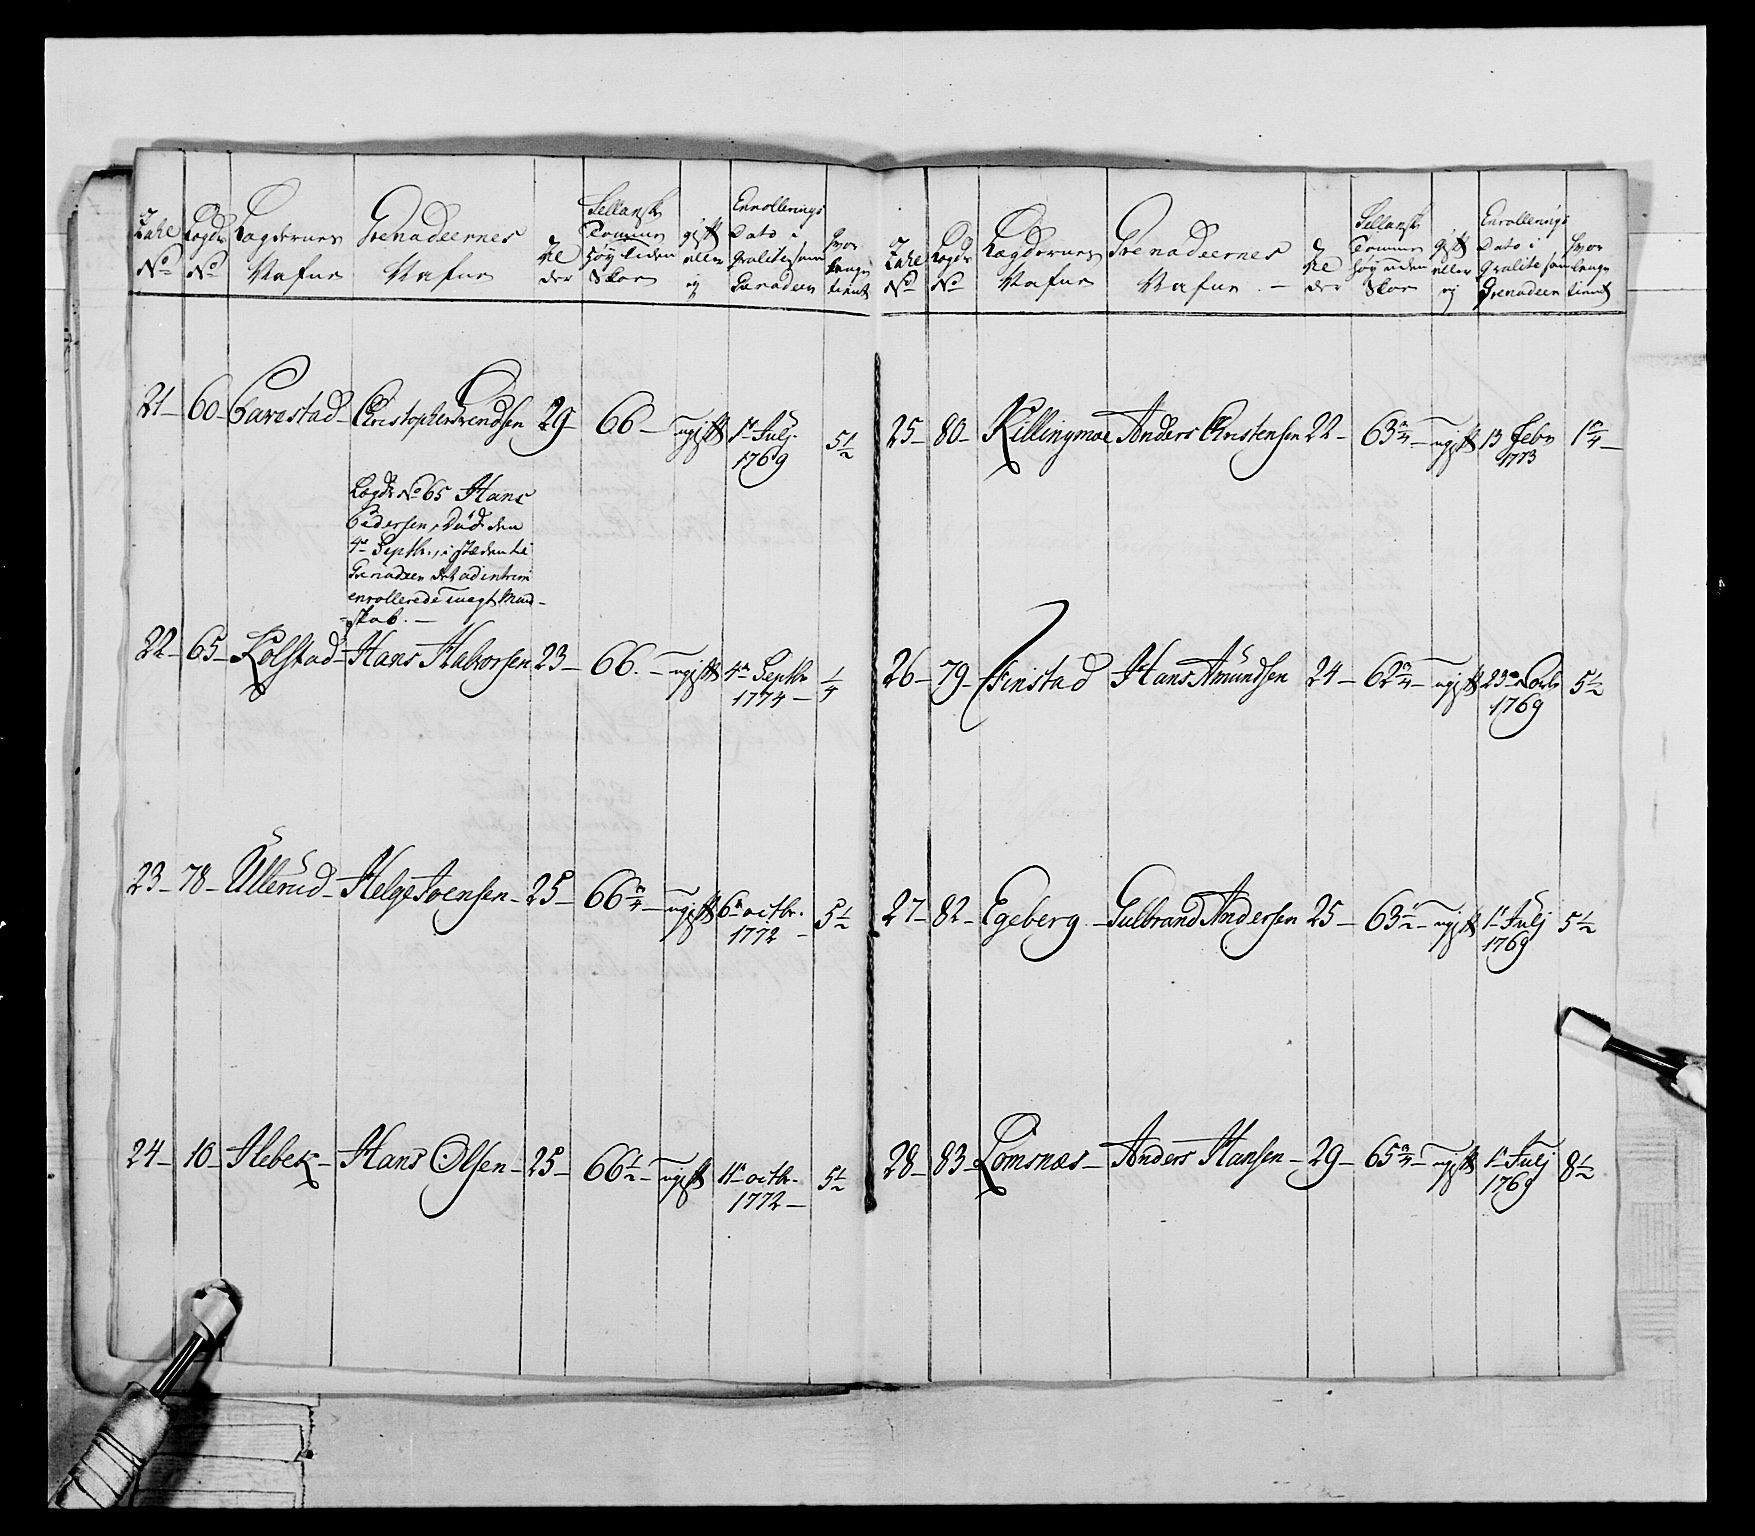 Tahl No
Lægde No
Lægdernes Nafne
Grenadeernes Nafne
Al der
Sellansk Tommer Høy uden Skoe
gift eller ej
Enrollerings Dato i qvalite som Grenadeer
hvor lenge tient
21 — 60 — Garestad — Christopher Svendsen 29 — 66 — ugift 1te Julj 1769 5 1/2
Lægde No 65 Hans
Pedersen, Død den
4de Septbr., i steden til
Grenadeer det ad interim
enrollerede vagt Mand-
skab. —
22 — 65 — Kolstad — Hans Halvorsen 23 — 66. — ugift 4de Septbr 1774 — 1/4
23 — 78 — Ullerud — Helge Svensen — 25 — 66 3/4 — ugift 6te octbr. 1772 — 5 1/2
24 — 10 — Ilebek — Hans Olsen — 25 — 66 1/2 — ugift 11te octbr. 1772 — 5 1/2
Tahl No
Lægde No
Lægdernes Nafne
Grenadeernes Nafne. —
Al der
Sellansk Tommer høy uden Skoe
gift eller ej
Enrollerings Dato i qvalite som Grenadeer
hvor lenge tient
25 — 80 — Killingmoe Anders Christensen 22 — 63 3/4 — ugift 13 Febr 1773 1 3/4 —
26 — 79 — Finstad Hans Amundsen 24 — 62 3/4 — ugift 23de 1769 5 1/2
27 — 82 — Egeberg. — Gulbrand Andersen 25 — 63 1/2 — ugift 1te Julj 1769 5 1/2
28 — 83 — Lomsnæs — Anders Hansen — 29 — 65 3/4 — ugift 1te Julj 1769 8 1/2